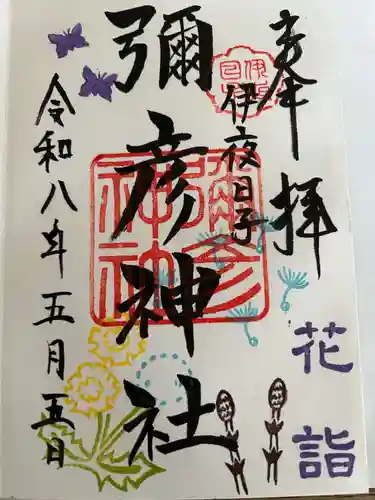 奉拝
伊夜日子
彌彦神社
令和八年五月五日
花詣
彌彦神社